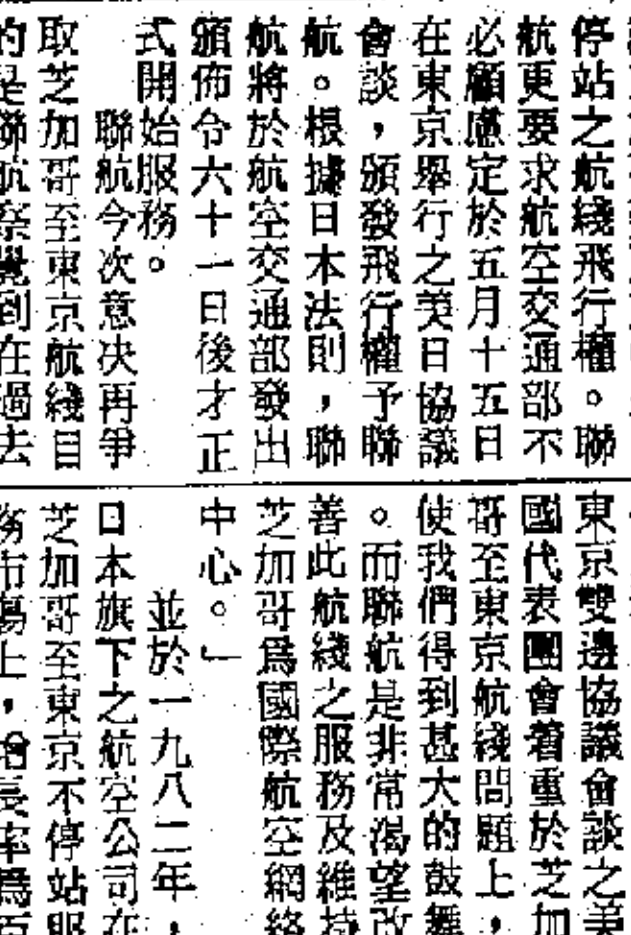 停站之航綫飛行權。聯
航更要求航空交通部不
必顧慮定於五月十五日
在東京舉行之美日協議
會談，頒發飛行權予聯
航。根據日本法則，聯
航將於航空交通部發出
頒佈令六十一日後才正
式開始服務。
聯航今次意決再爭
取芝加哥至東京航綫目
的是聯航察覺到在過去
東京雙邊協議會談之美
國代表團會着重於芝加
哥至東京航綫問題上，
使我們得到甚大的鼓舞
。而聯航是非常渴望改
善此航綫之服務及維持
芝加哥爲國際航空網絡
中心。」
並於一九八二年，
日本旗下之航空公司在
芝加哥至東京不停站服
務市場上，增長率爲百